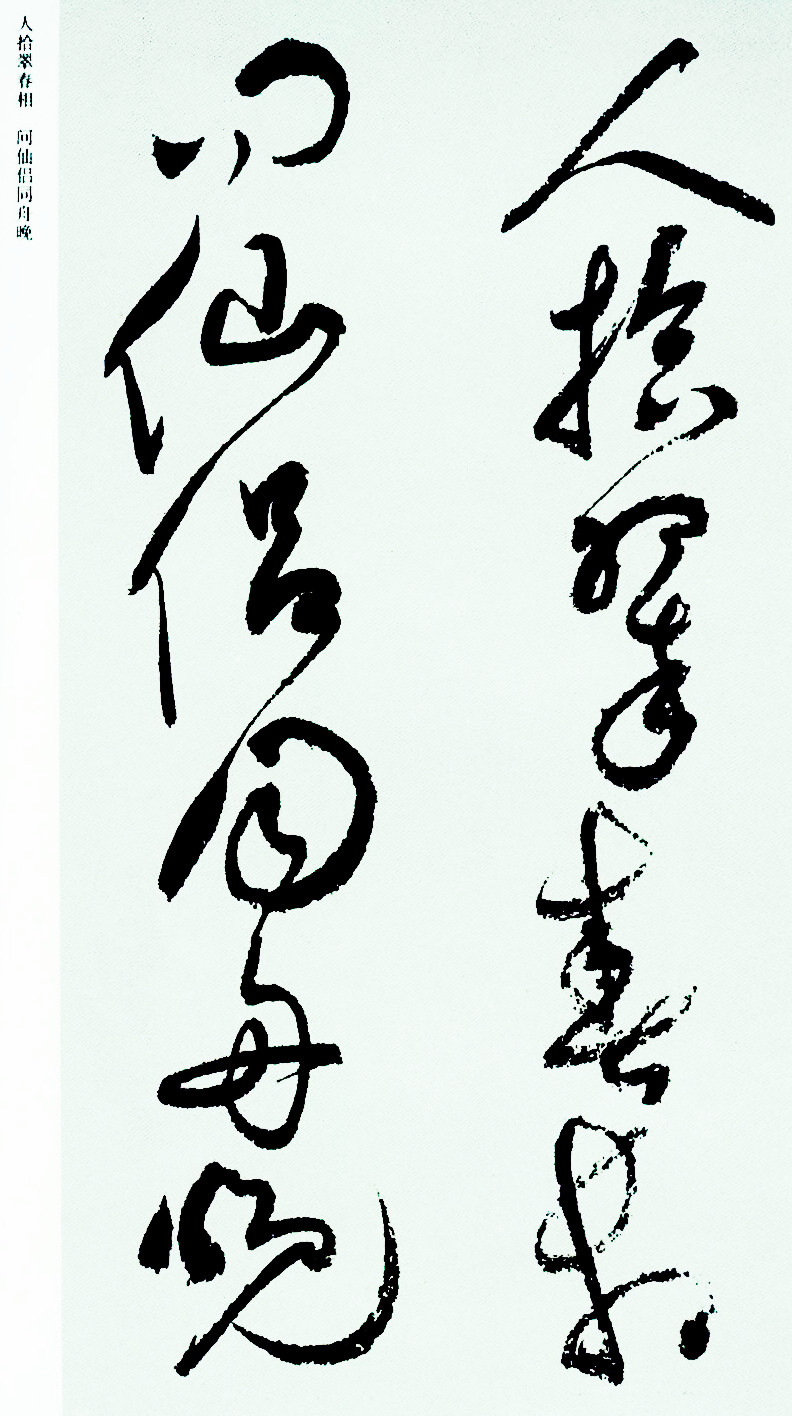 人拾翠春相
问仙侣同舟晚
人拾翠春相 问仙侣同舟晚